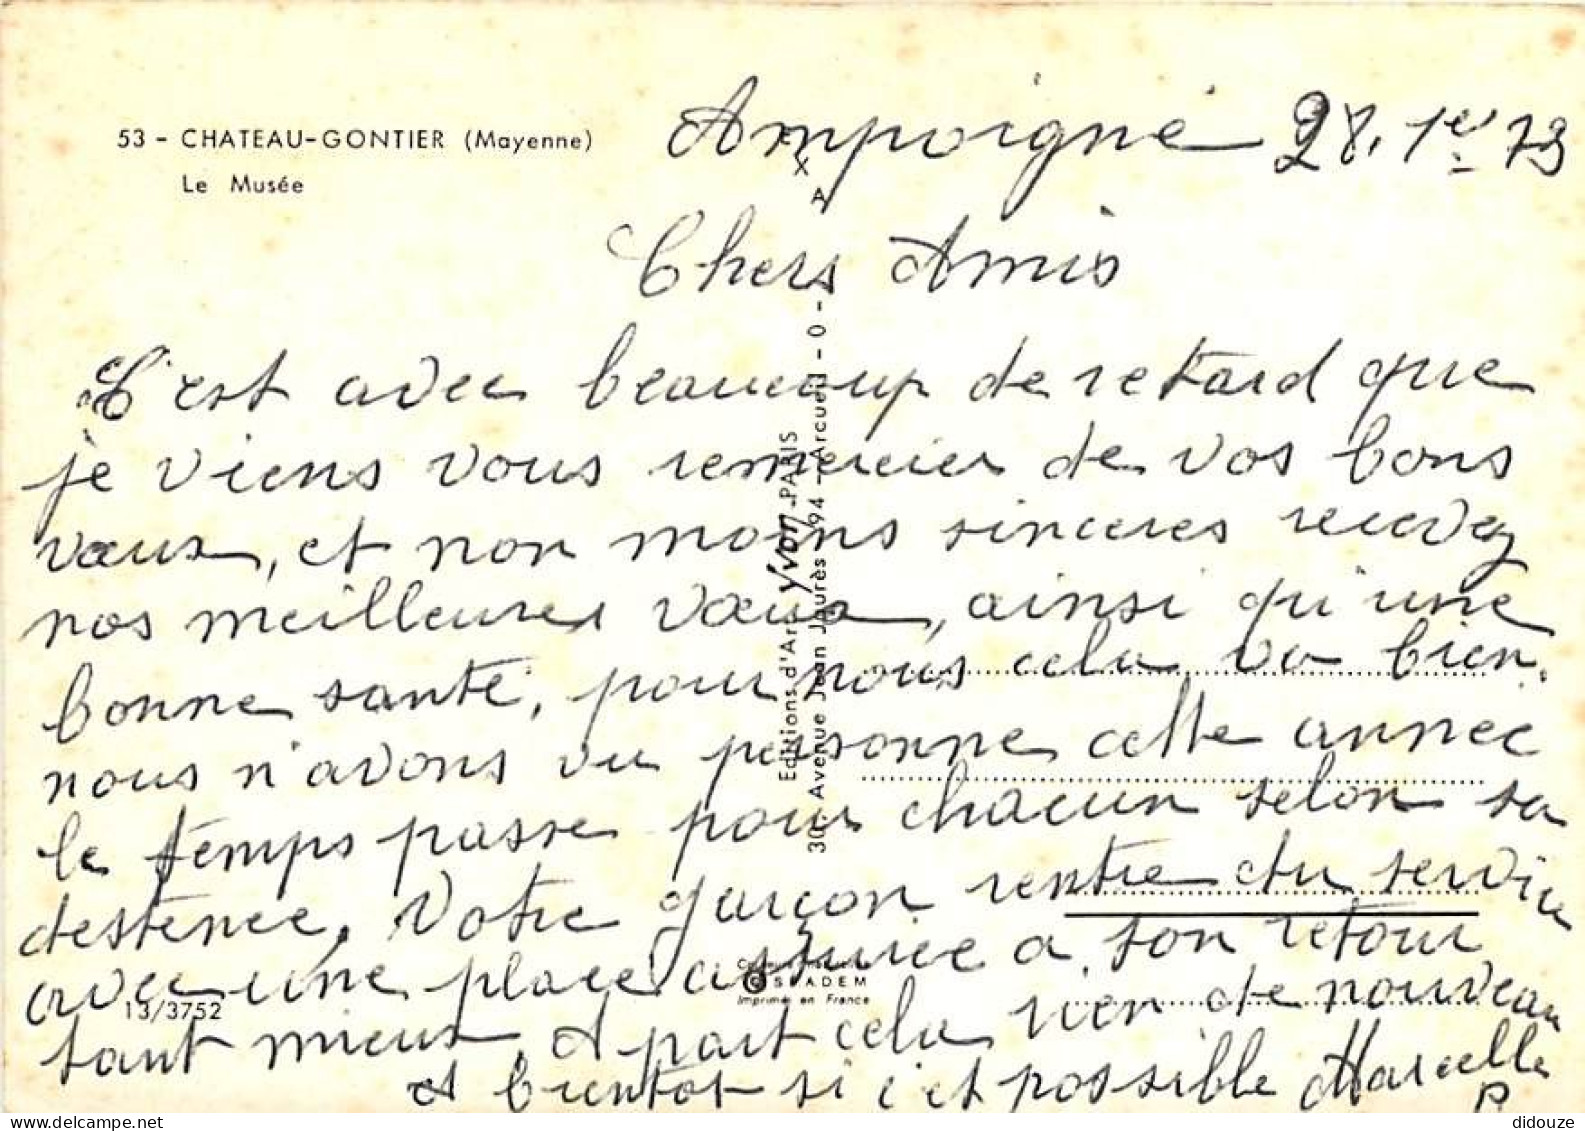 53 - CHATEAU-GONTIER (Mayenne)
Le Musée
Ampoigné 28. 1er 73
Chers Amis
C'est avec beaucoup de retard que
je viens vous remercier de vos bons
vœux, et non moins sinceres recevez
nos meilleures vœux, ainsi qu'une
bonne santé, pour nous cela va bien.
nous n'avons vu personne cette année
le temps passe pour chacun selon sa
destenée. Votre garçon rentre du service
avec une place assurée a son retour
tant mieux. A part cela rien de nouveau
A bientot si c'est possible Marcelle
R
Editions d'Art Yvon - PARIS
Avenue Jean Jaurès - 94 - Arcueil - 0 -
X
A
SPADEM
Imprimé en France
13/3752
delcampe.net
didouze